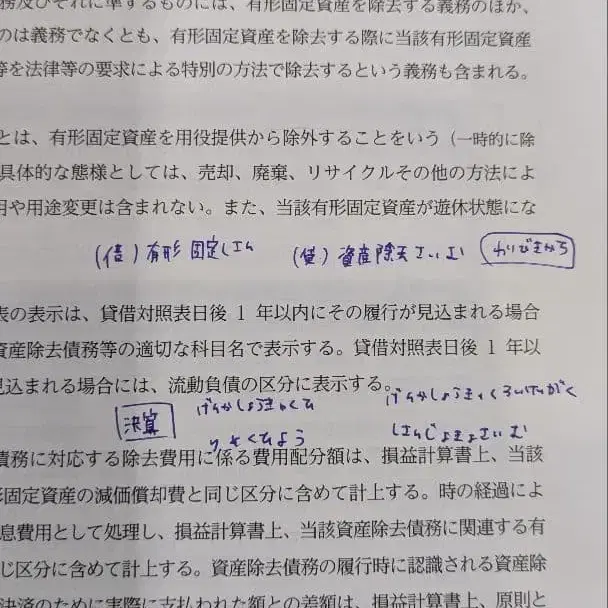 務及びそれに準ずるものには、有形固定資産を除去する義務のほか、
のは義務でなくとも、有形固定資産を除去する際に当該有形固定資産
等を法律等の要求による特別の方法で除去するという義務も含まれる。
とは、有形固定資産を用役提供から除外することをいう（一時的に除
具体的な態様としては、売却、廃棄、リサイクルその他の方法によ
用や用途変更は含まれない。また、当該有形固定資産が遊休状態にな
(借) 有形固定しさん (貸) 資産除去さいむ わりびきから
表の表示は、貸借対照表日後 1 年以内にその履行が見込まれる場合
資産除去債務等の適切な科目名で表示する。貸借対照表日後 1 年以
見込まれる場合には、流動負債の区分に表示する。
決算 げんかしょうきゃくひ げんかしょうきゃくるいけいがく
りそくひよう しさんじょきょさいむ
債務に対応する除去費用に係る費用配分額は、損益計算書上、当該
形固定資産の減価償却費と同じ区分に含めて計上する。時の経過によ
息費用として処理し、損益計算書上、当該資産除去債務に関連する有
じ区分に含めて計上する。資産除去債務の履行時に認識される資産除
決済のために実際に支払われた額との差額は、損益計算書上、原則と